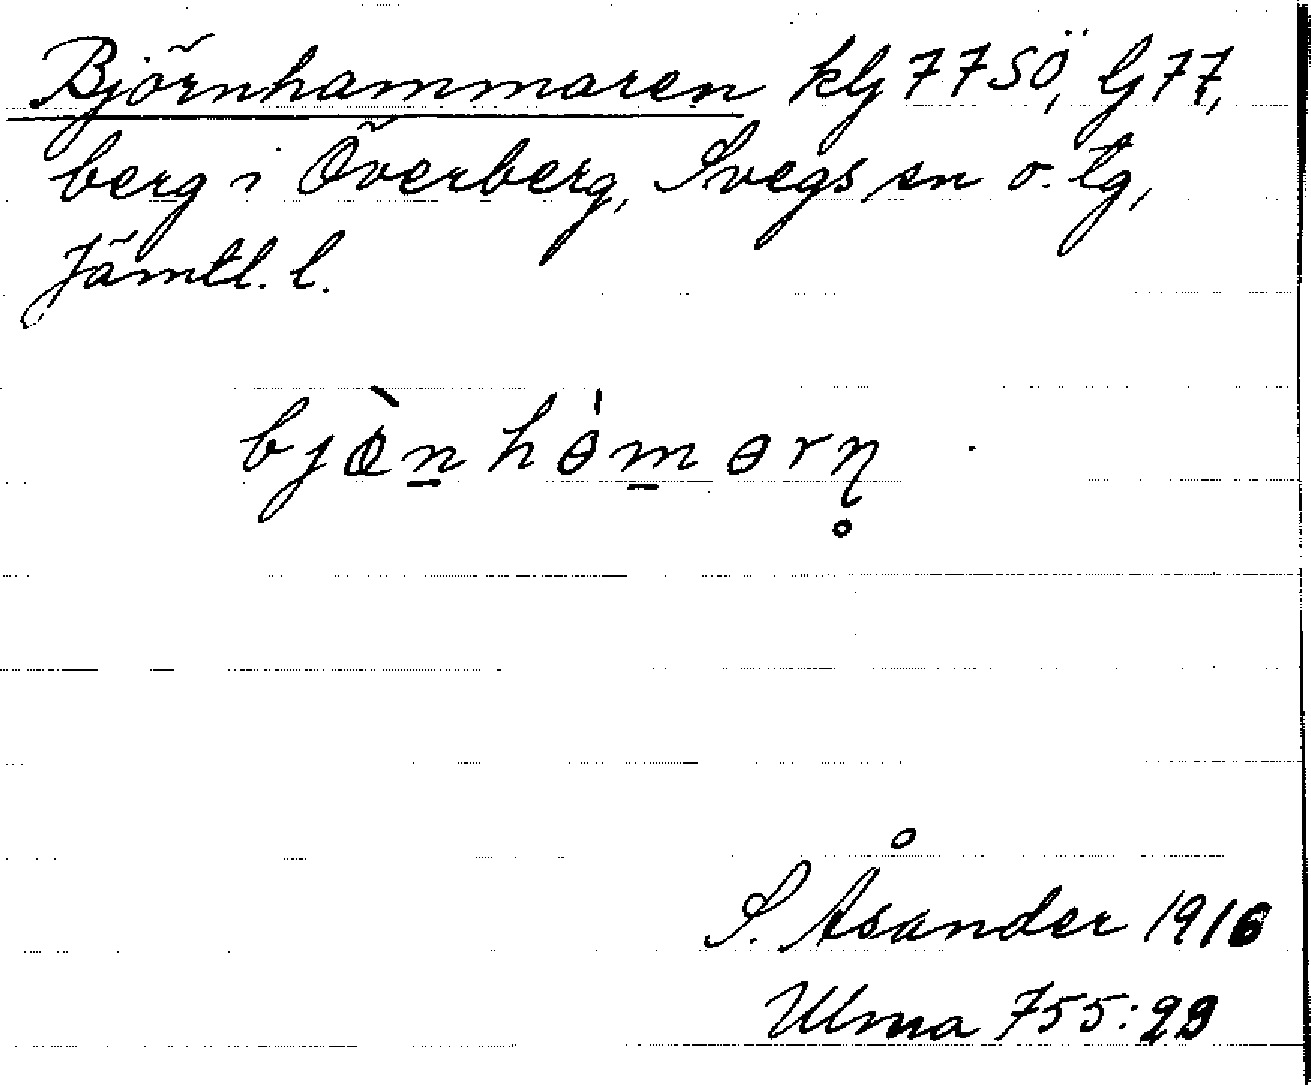 Björnhammaren klj 77SÖ, lj 77,
berg i Överberg, Svegs sn o. tg,
Jämtl. l.
S. Åsander 1916
Ulma 755:29